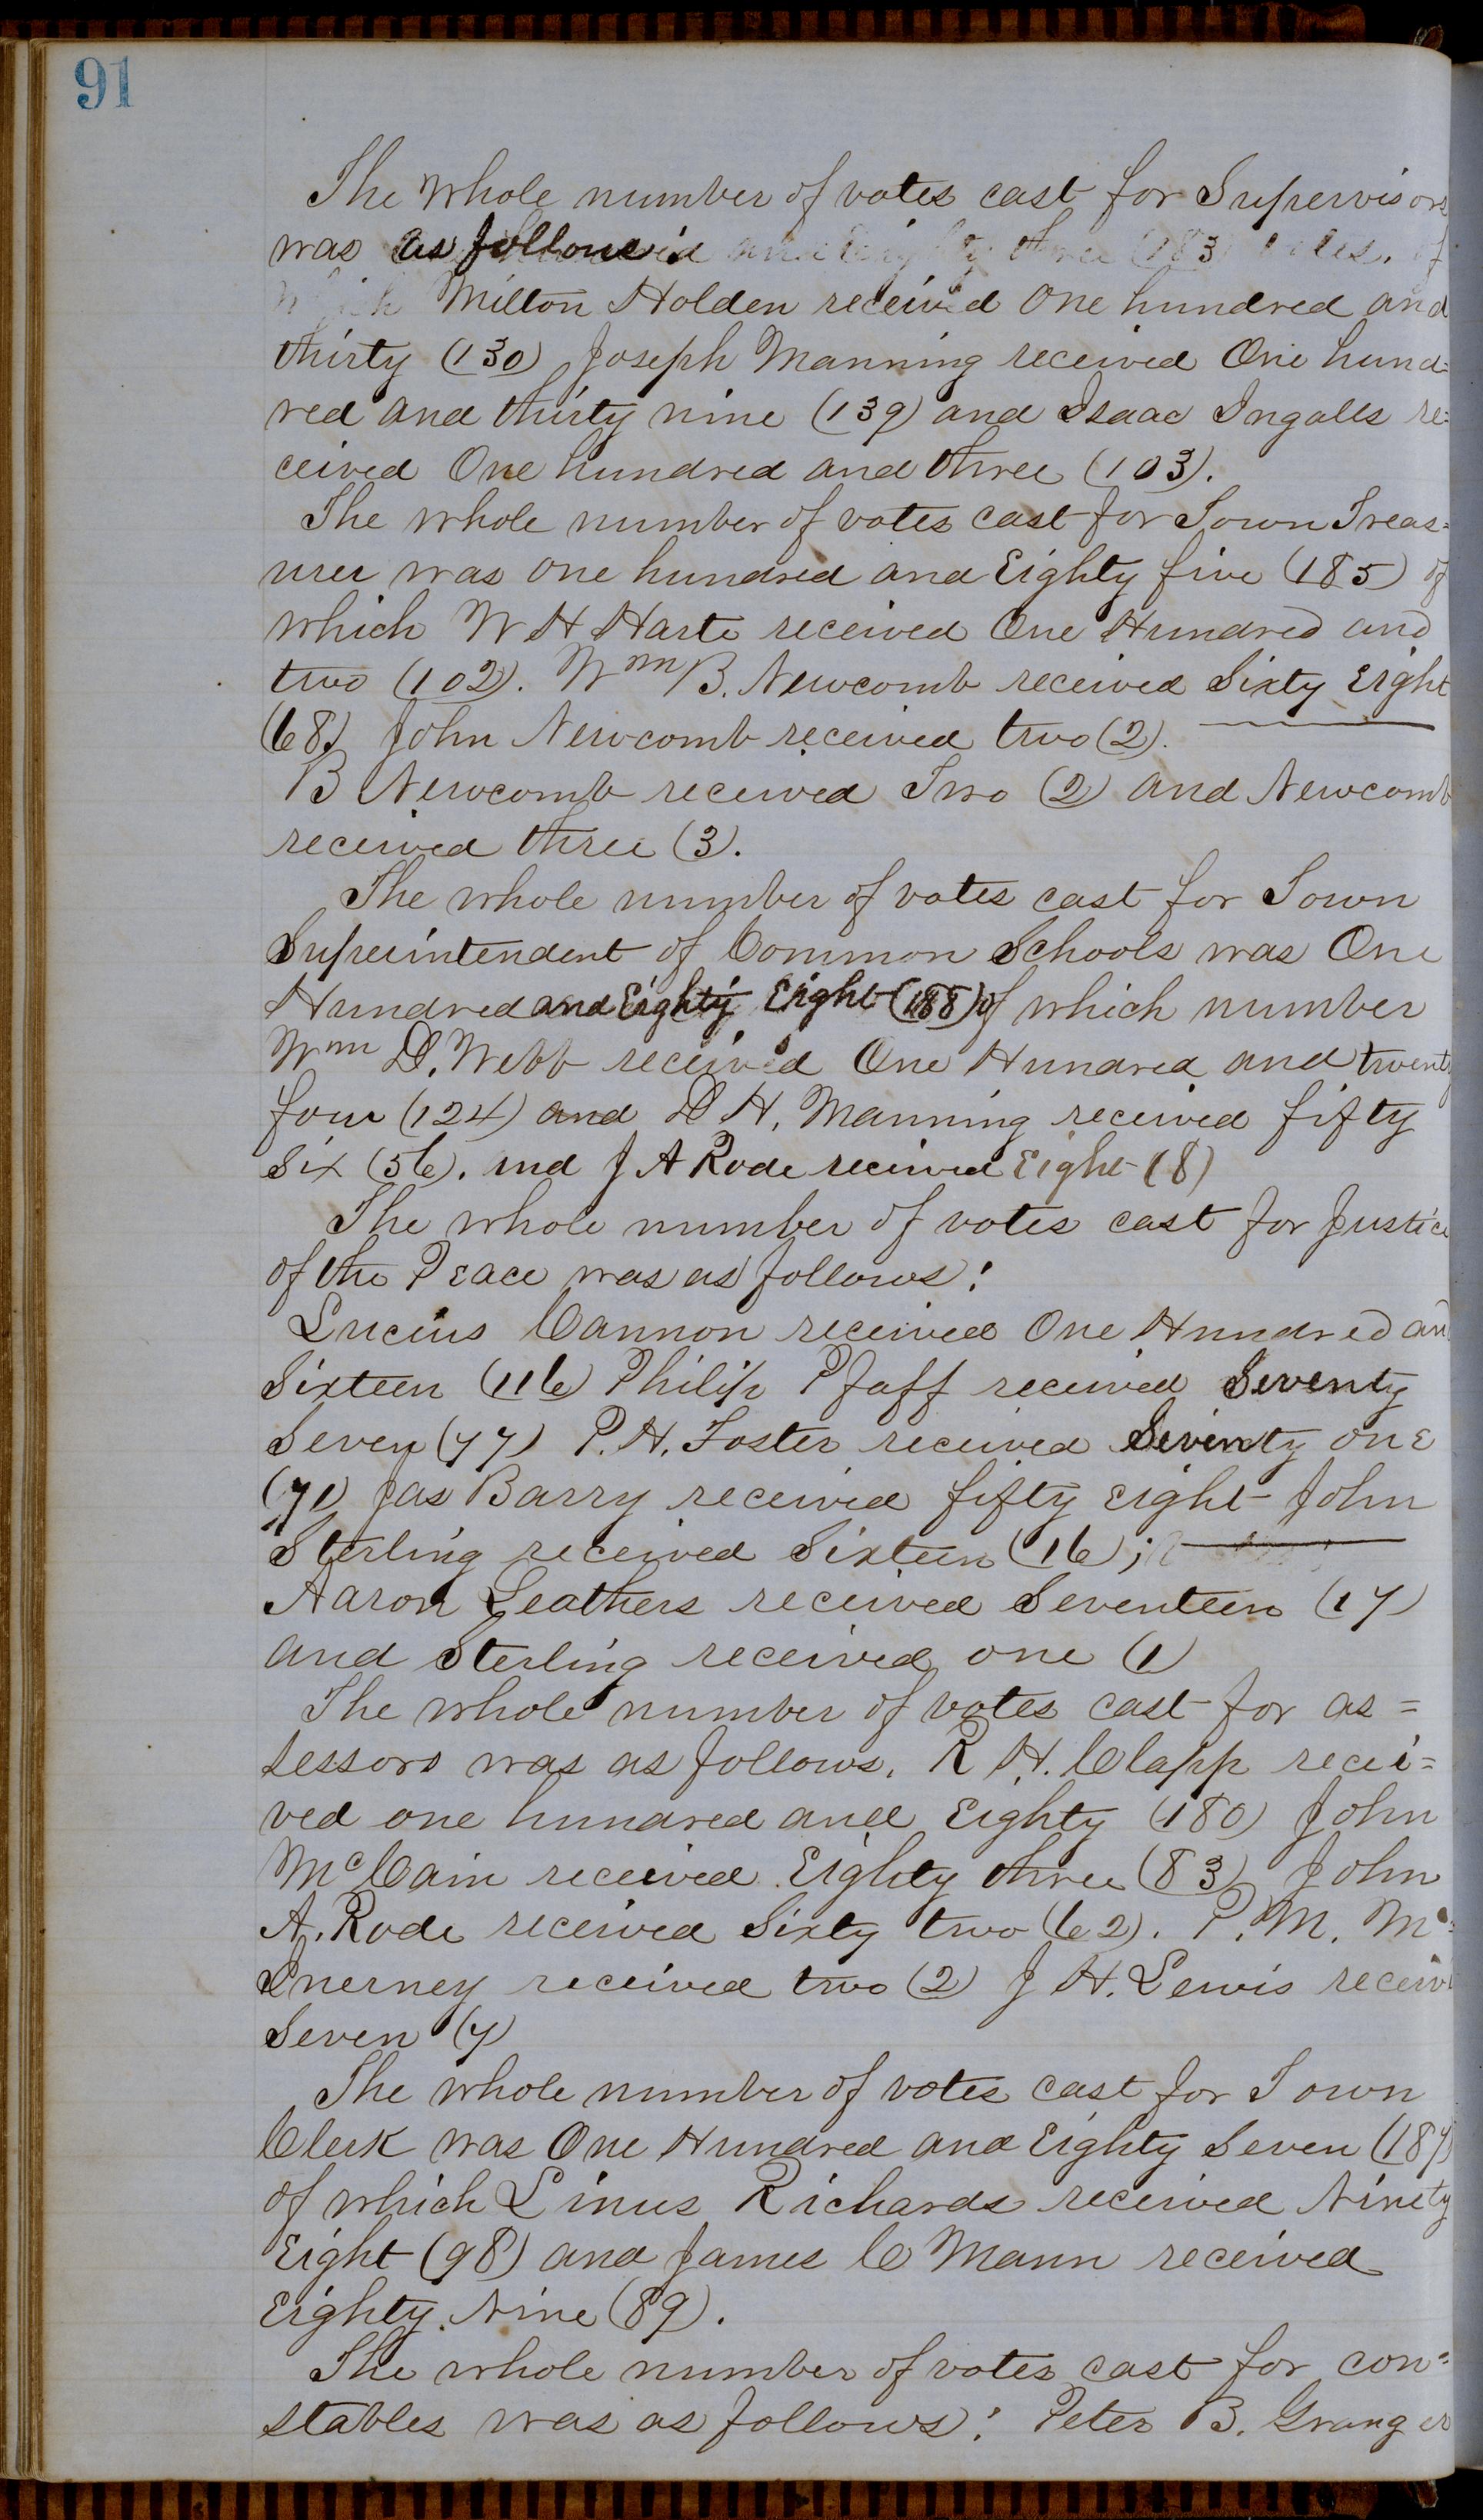 91
The whole number of votes cast for Supervisors
was as follows and Eighty three (183) votes. of
which Milton Holden received One hundred and
thirty (130) Joseph Manning received One hund=
red and thirty nine (139) and Isaac Ingalls re=
ceived One hundred and three (103).
The whole number of votes cast for Town Treas=
urer was one hundred and Eighty five (185) of
which W H Harte received One Hundred and
two (102). Wm B. Newcomb received Sixty Eight
(68) John Newcomb received two (2).
B Newcomb received Two (2) and Newcomb
received three (3).
The whole number of votes cast for Town
Superintendent of Common Schools was One
Hundred and Eighty Eight (188) of which number
Wm D. Webb received One Hundred and twenty
four (124) and D H. Manning received fifty
six (56). and J A Rode received Eight (8)
The whole number of votes cast for Justice
of the Peace was as follows:
Lucius Cannon received One Hundred and
Sixteen (116) Philip Pfaff received Seventy
Seven (77) P. H. Foster received Seventy one
(71) Jas Barry received fifty eight John
Sterling received Sixteen (16);
Aaron Leathers received Seventeen (17)
and Sterling received one (1)
The whole number of votes cast for as=
sessors was as follows. R H. Clapp recei=
ved one hundred and Eighty (180) John
McCain received Eighty three (83) John
A. Rode received Sixty two (62). P. M. Mc=
Inerney received two (2) J H. Lewis receiv
Seven (7)
The whole number of votes cast for Town
Clerk was One Hundred and Eighty Seven (187)
of which Linus Richards received Ninety
Eight (98) and James C Mann received
Eighty Nine (89).
The whole number of votes cast for con=
stables was as follows: Peter B. Granger